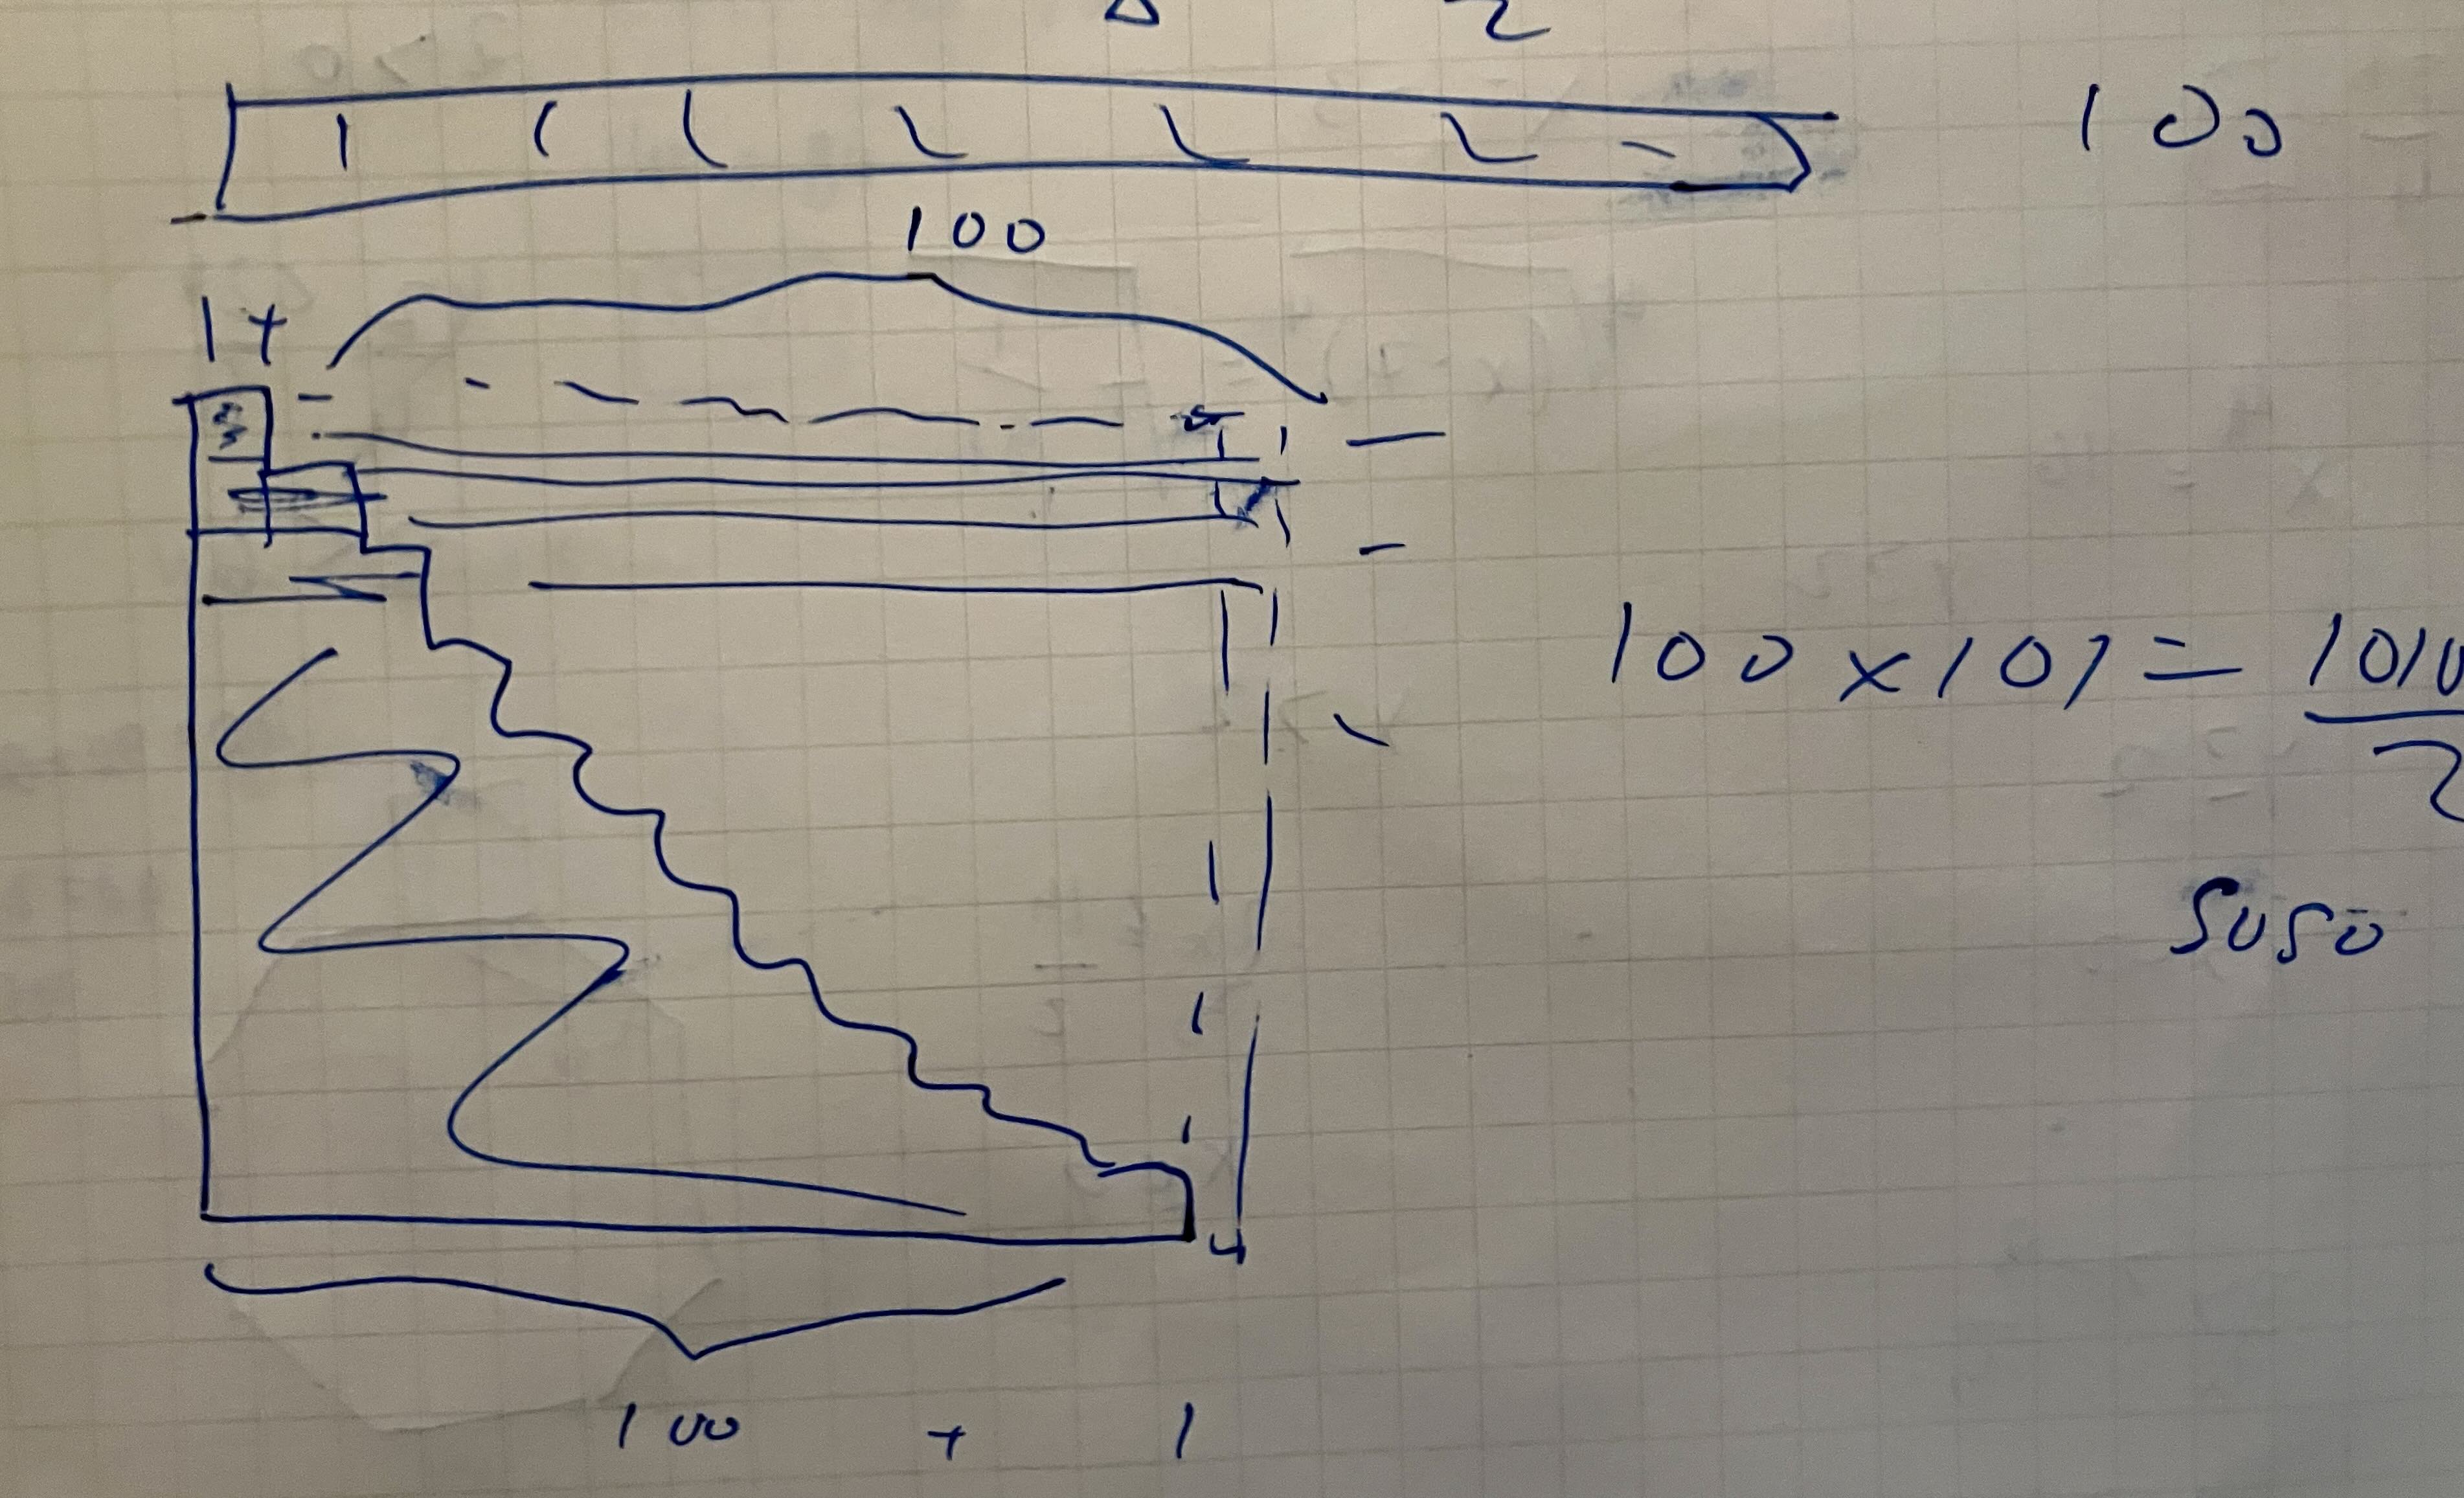 2
100
100
1+
100 × 101 = 1010
2
5050
100 + 1